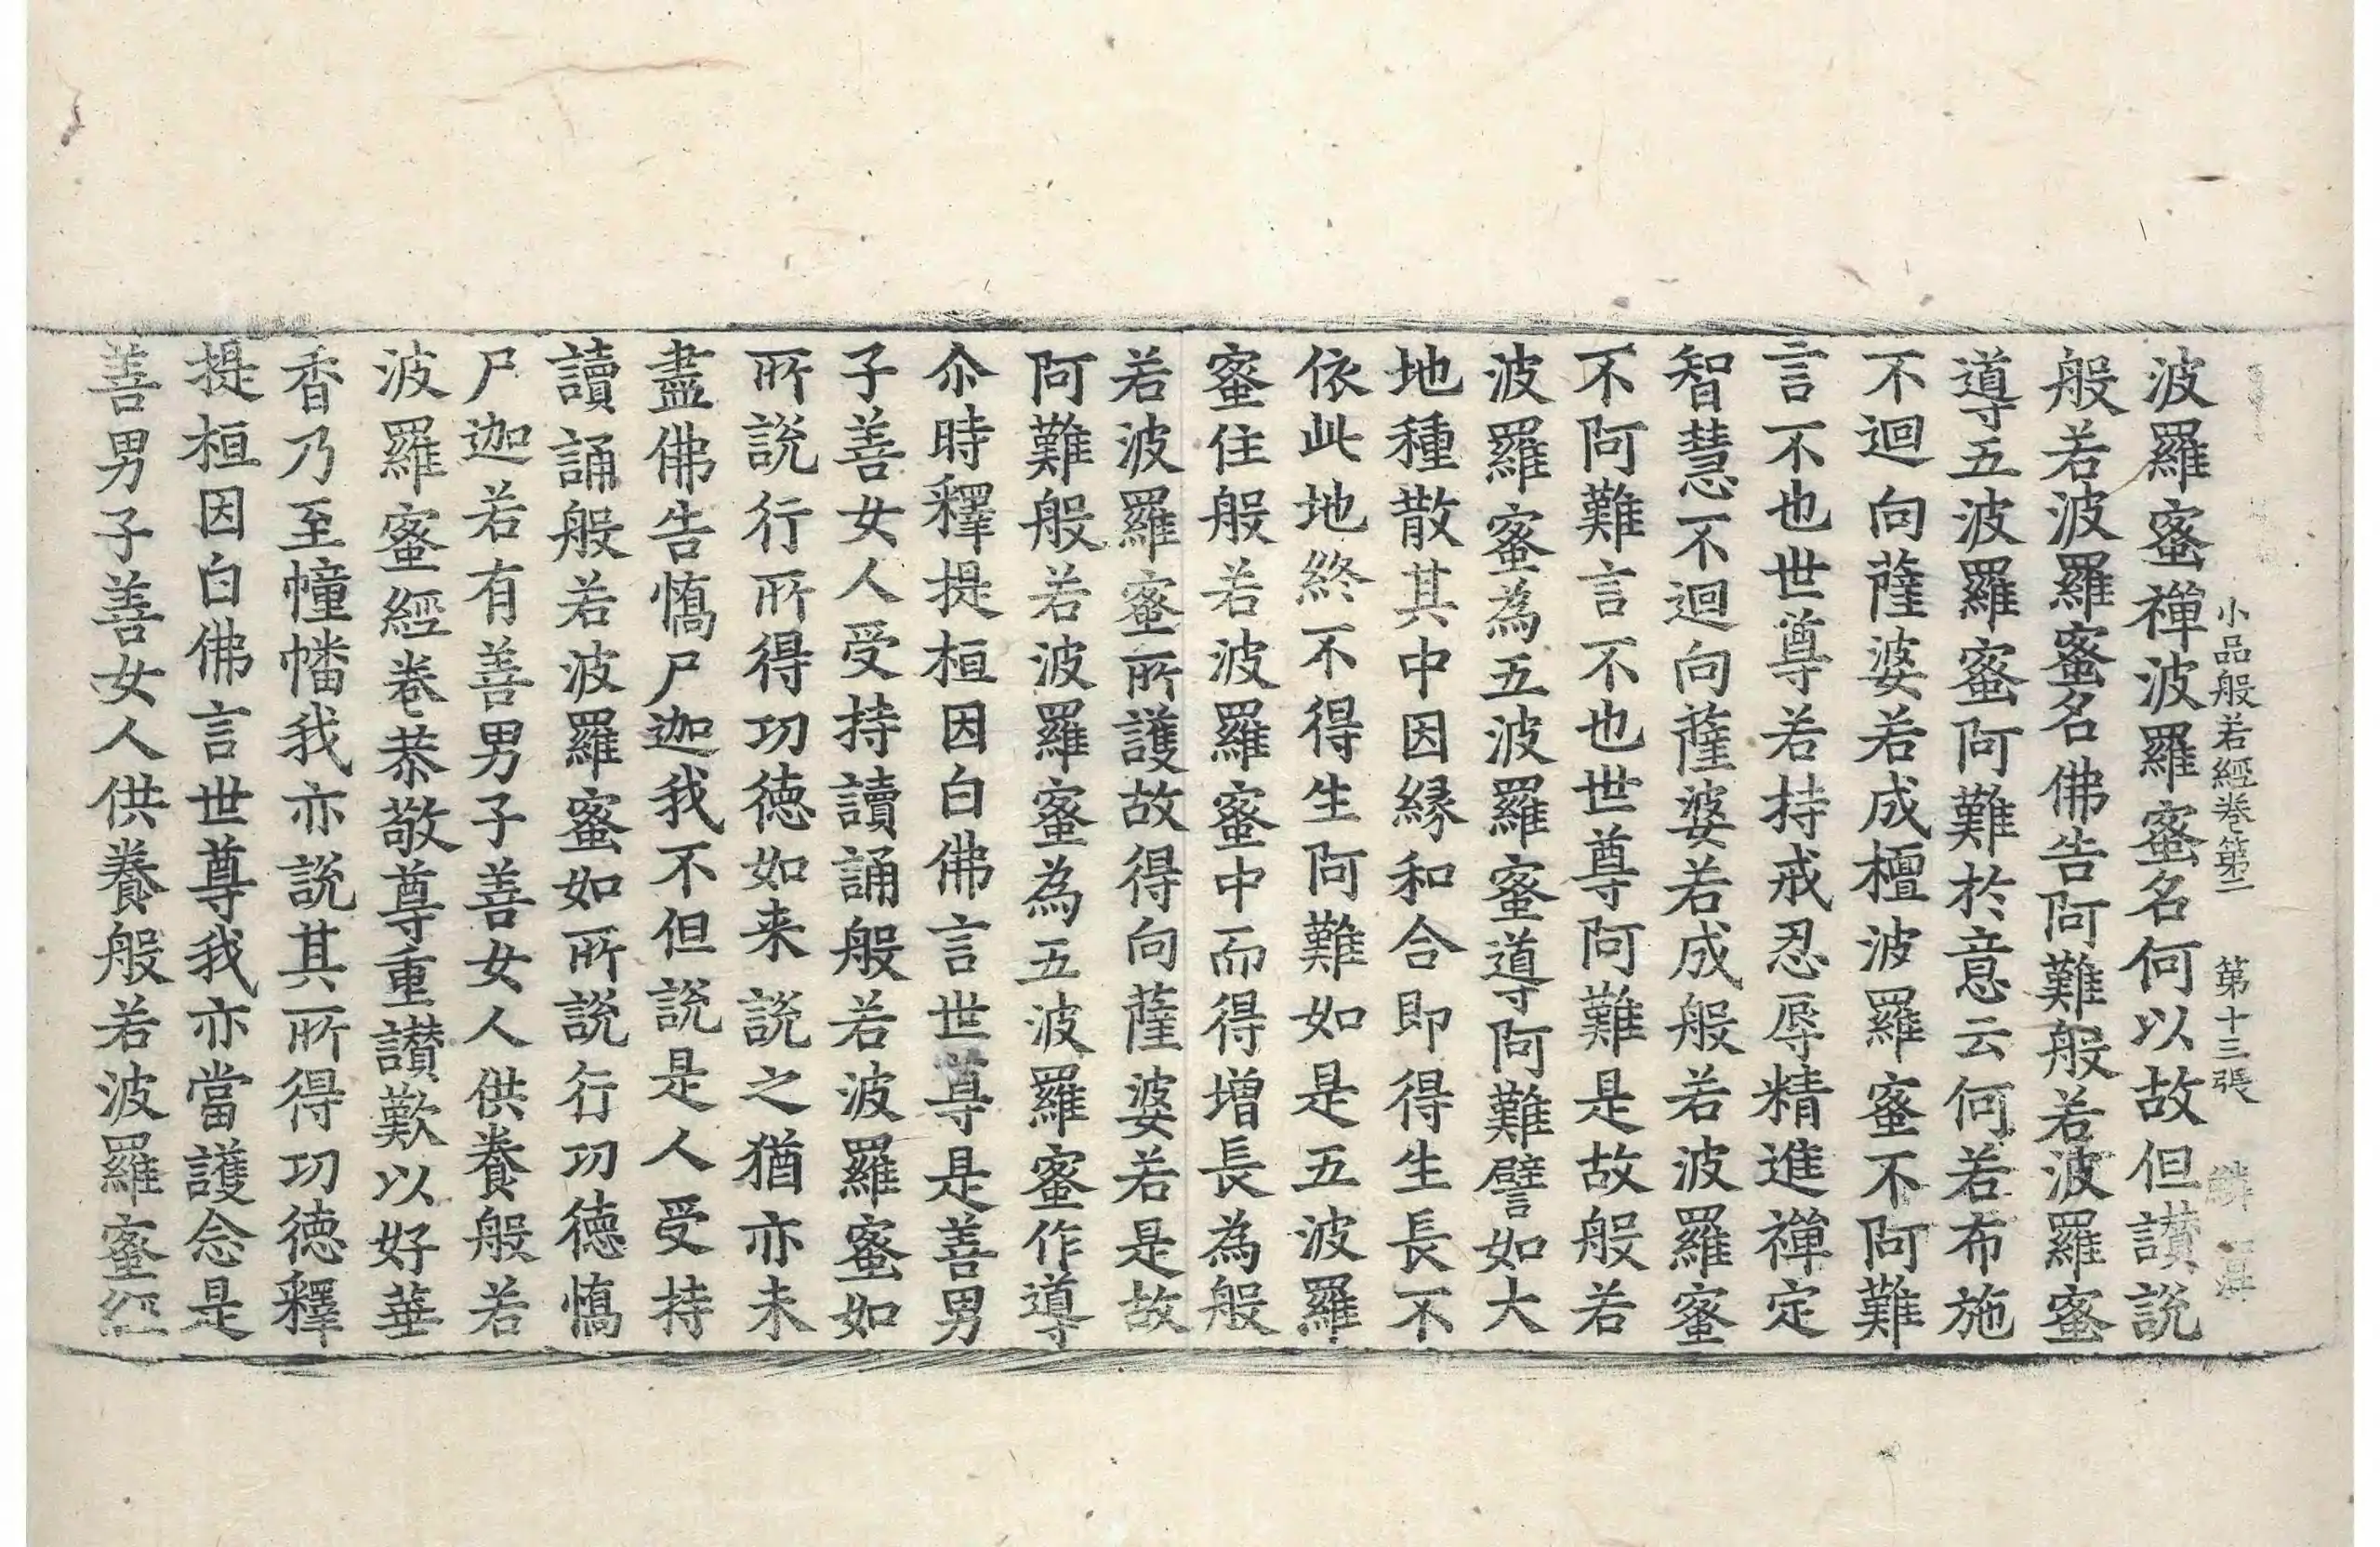 小品般若經卷第二　第十三張　鱗
波羅蜜禪波羅蜜名何以故但讃說
般若波羅蜜名佛告阿難般若波羅蜜
導五波羅蜜阿難於意云何若布施
不迴向薩婆若成檀波羅蜜不阿難
言不也世尊若持戒忍辱精進禪定
智慧不迴向薩婆若成般若波羅蜜
不阿難言不也世尊阿難是故般若
波羅蜜為五波羅蜜導阿難譬如大
地種散其中因緣和合即得生長不
依此地終不得生阿難如是五波羅
蜜住般若波羅蜜中而得增長為般
若波羅蜜所護故得向薩婆若是故
阿難般若波羅蜜為五波羅蜜作導
尒時釋提桓因白佛言世尊是善男
子善女人受持讀誦般若波羅蜜如
所說行所得功德如来說之猶亦未
盡佛告憍尸迦我不但說是人受持
讀誦般若波羅蜜如所說行功德憍
尸迦若有善男子善女人供養般若
波羅蜜經卷恭敬尊重讃歎以好華
香乃至幢幡我亦說其所得功德釋
提桓因白佛言世尊我亦當護念是
善男子善女人供養般若波羅蜜經